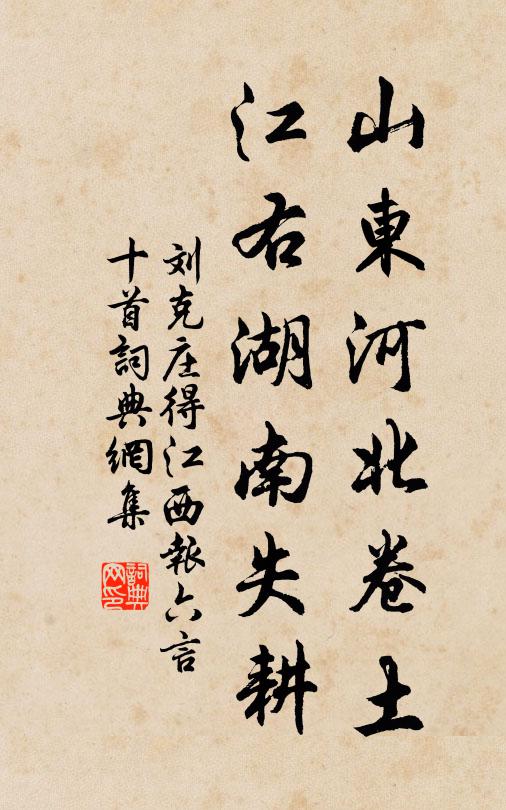 山東河北卷土
江右湖南失耕
刘克庄得江西報六言
十首詞典網集
詞典网印